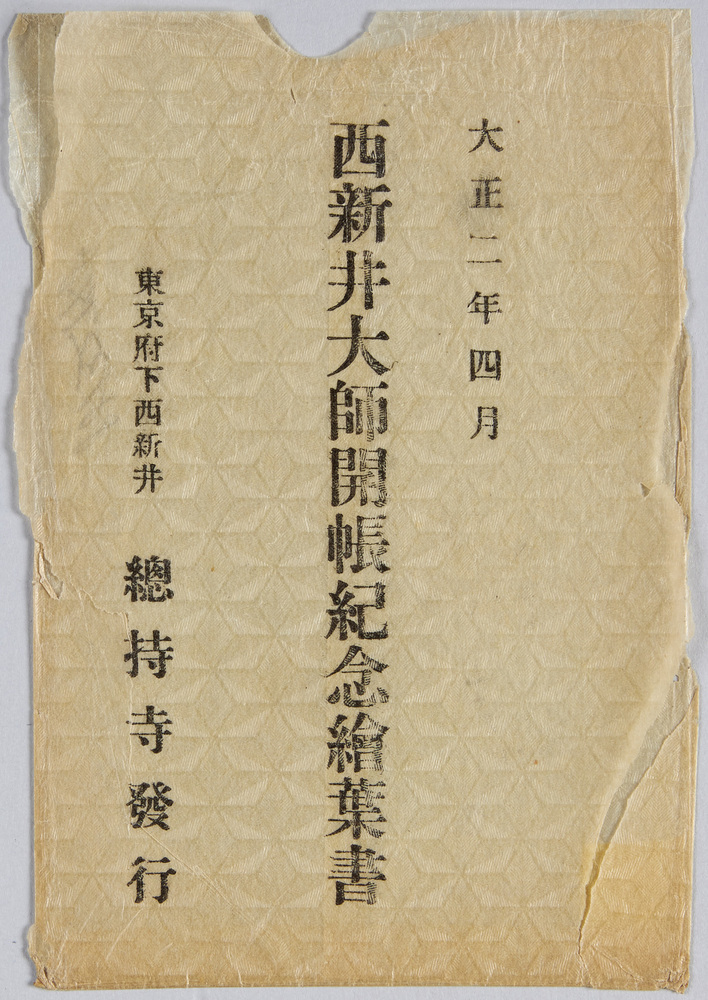 大正二年四月
西新井大師開帳紀念繪葉書
東京府下西新井 總持寺發行